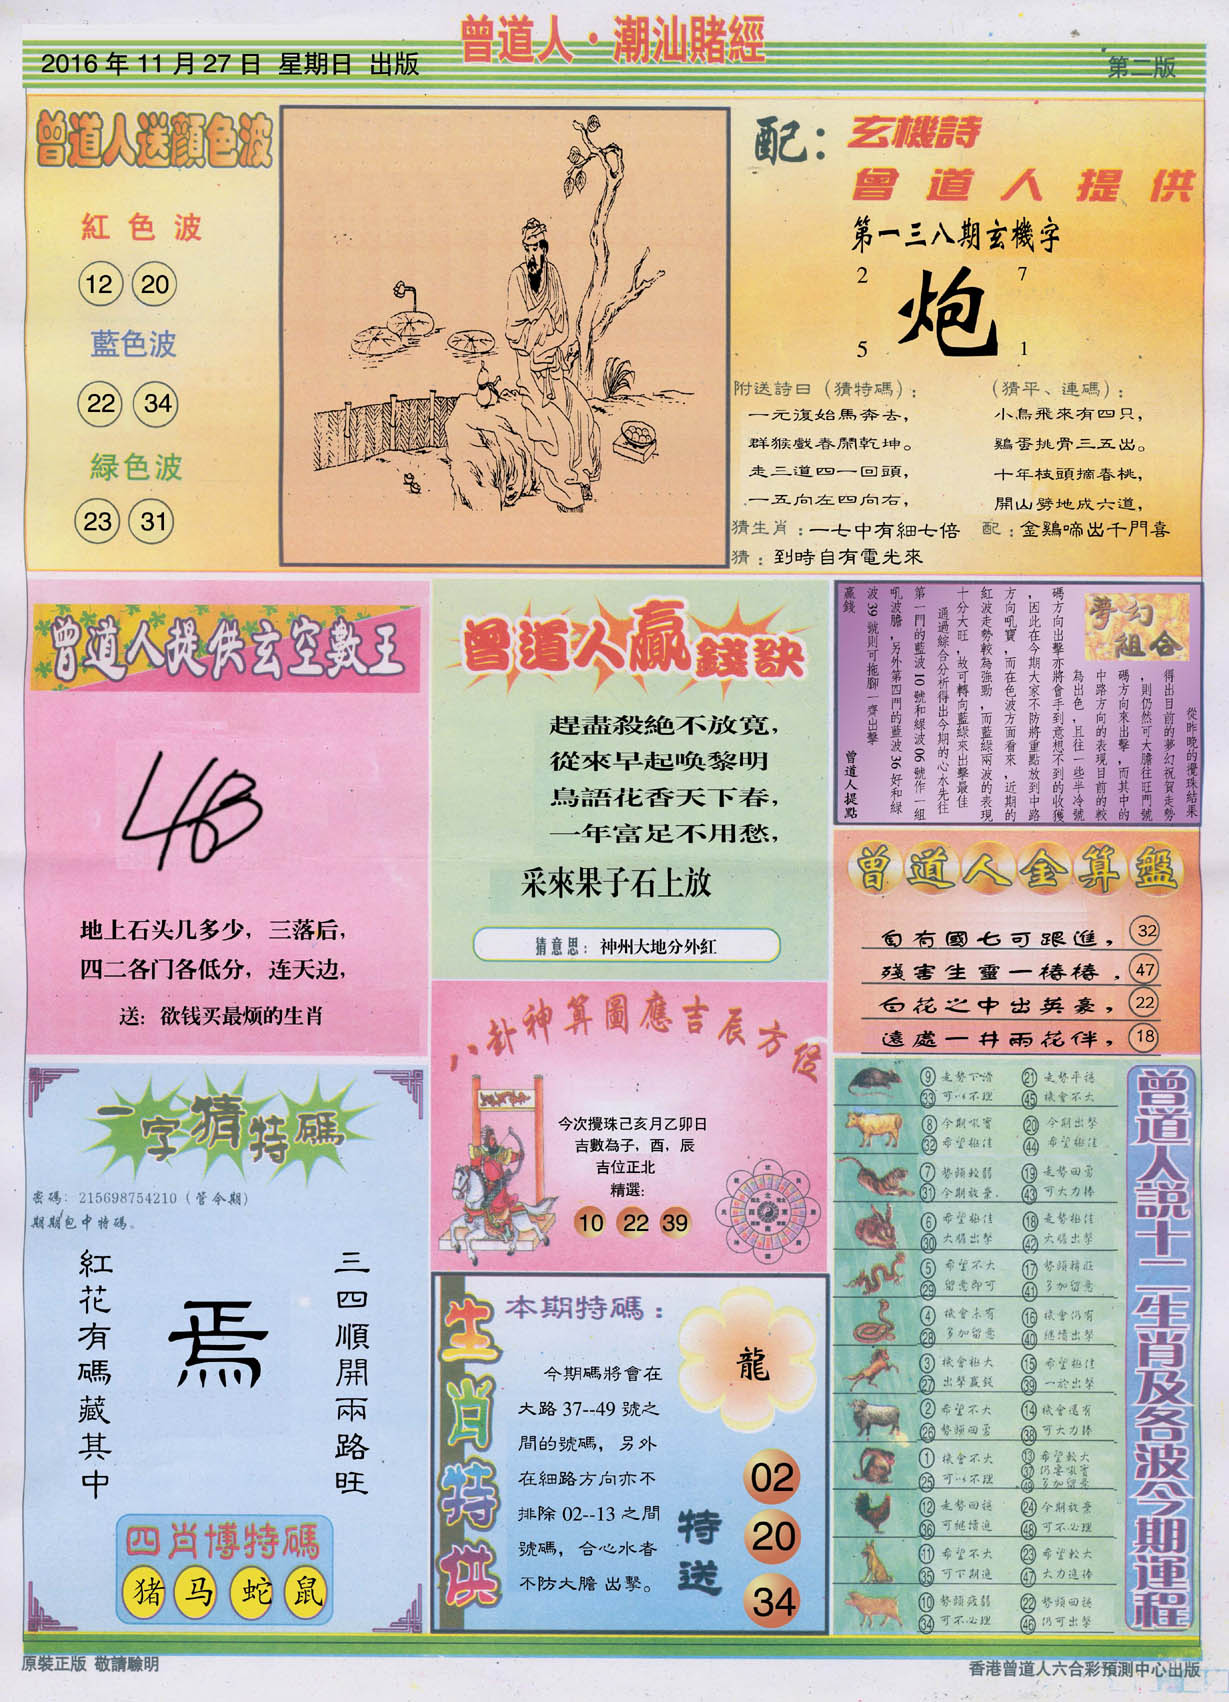 曾道人·潮汕賭經
2016年11月27日 星期日 出版
第二版
曾道人送顔色波
紅色波
12 20
藍色波
22 34
緑色波
23 31
配：玄機詩
曾道人提供
第一三八期玄機字
2 7
炮
5 1
附送詩曰（猜特碼）：
一元復始馬奔去，
群猴戲春鬧乾坤。
走三道四一回頭，
一五向左四向右，
（猜平、連碼）：
小鳥飛來有四只，
鷄蛋挑骨三五出。
十年枝頭摘春桃，
開山劈地成六道，
猜生肖：一七中有細七倍
配：金鷄啼出千門喜
猜：到時自有電光來
曾道人提供玄空數王
地上石头几多少，三落后，
四二各门各低分，连天边，
送：欲钱买最烦的生肖
曾道人贏錢訣
趕盡殺絕不放寬，
從來早起喚黎明
鳥語花香天下春，
一年富足不用愁，
采來果子石上放
猜意思：神州大地分外紅
夢幻組合
從昨晚的攪珠結果
得出目前的夢幻祝賀走勢
，則仍然可大膽往旺門號
碼方向來出擊，而其中的
中路方向的表現目前的較
為出色，且往一些半冷號
碼方向出擊亦將會手到意想不到的收獲
，因此在今期大家不防將重點放到中路
方向吼寶，而在色波方面看來，近期的
紅波走勢較為強勁，而藍綠兩波的表現
十分大旺，故可轉向藍綠來出擊最佳
通過綜合分析得出今期的心水先往
第一門的藍波10號和綠波06號作一組
吼波膽，另外第四門的藍波36好和綠
波39號則可拖腳一齊出擊
贏錢
曾道人提點
曾道人金算盤
自有國七可跟進， 32
殘害生靈一樁樁， 47
百花之中出英豪， 22
遠處一井兩花伴， 18
一字猜特碼
密碼：215698754210（管令期）
期期包中特碼。
三四順開兩路旺
焉
紅花有碼藏其中
四肖博特碼
猪 马 蛇 鼠
八卦神算圖應吉辰方位
今次攪珠己亥月乙卯日
吉數為子，酉，辰
吉位正北
精選:
10 22 39
生肖特供
本期特碼：
龍
今期碼將會在
大路37--49號之
間的號碼，另外
在細路方向亦不
排除02--13之間
號碼，合心水者
不防大膽 出擊。
特送
02
20
34
曾道人説十二生肖及各波今期運程
9 走勢下滑 21 走勢平穩
33 可以不理 45 機會不大
8 今期吼寶 20 今期出擊
32 希望極佳 44 希望極佳
7 勢頭較弱 19 走勢回勇
31 今期放棄. 43 可大力捧
6 希望極佳 18 走勢極佳
30 大膽出擊 42 大膽出擊
5 希望不大 17 勢頭
29 留意即可 41 多加留意
4 機會未有 16 機會仍有
28 多加留意 40 繼續出擊
3 機會極大 15 希望極佳
27 出擊贏錢 39 一於出擊
2 希望不大 14 機會還有
26 勢頭回勇 38 可大力捧
1 機會不大 13 希望較大
25 可以不理 37 仍要吼寶
49 多加留意
12 走勢回穩 24 今期放棄
36 可繼續追 48 可不必理
11 希望不大 23 希望較大
35 可下期追 47 大力追捧
10 勢頭疲弱 22 勢頭回穩
34 可不必理 46 仍可出擊
原裝正版 敬請驗明
香港曾道人六合彩預測中心出版